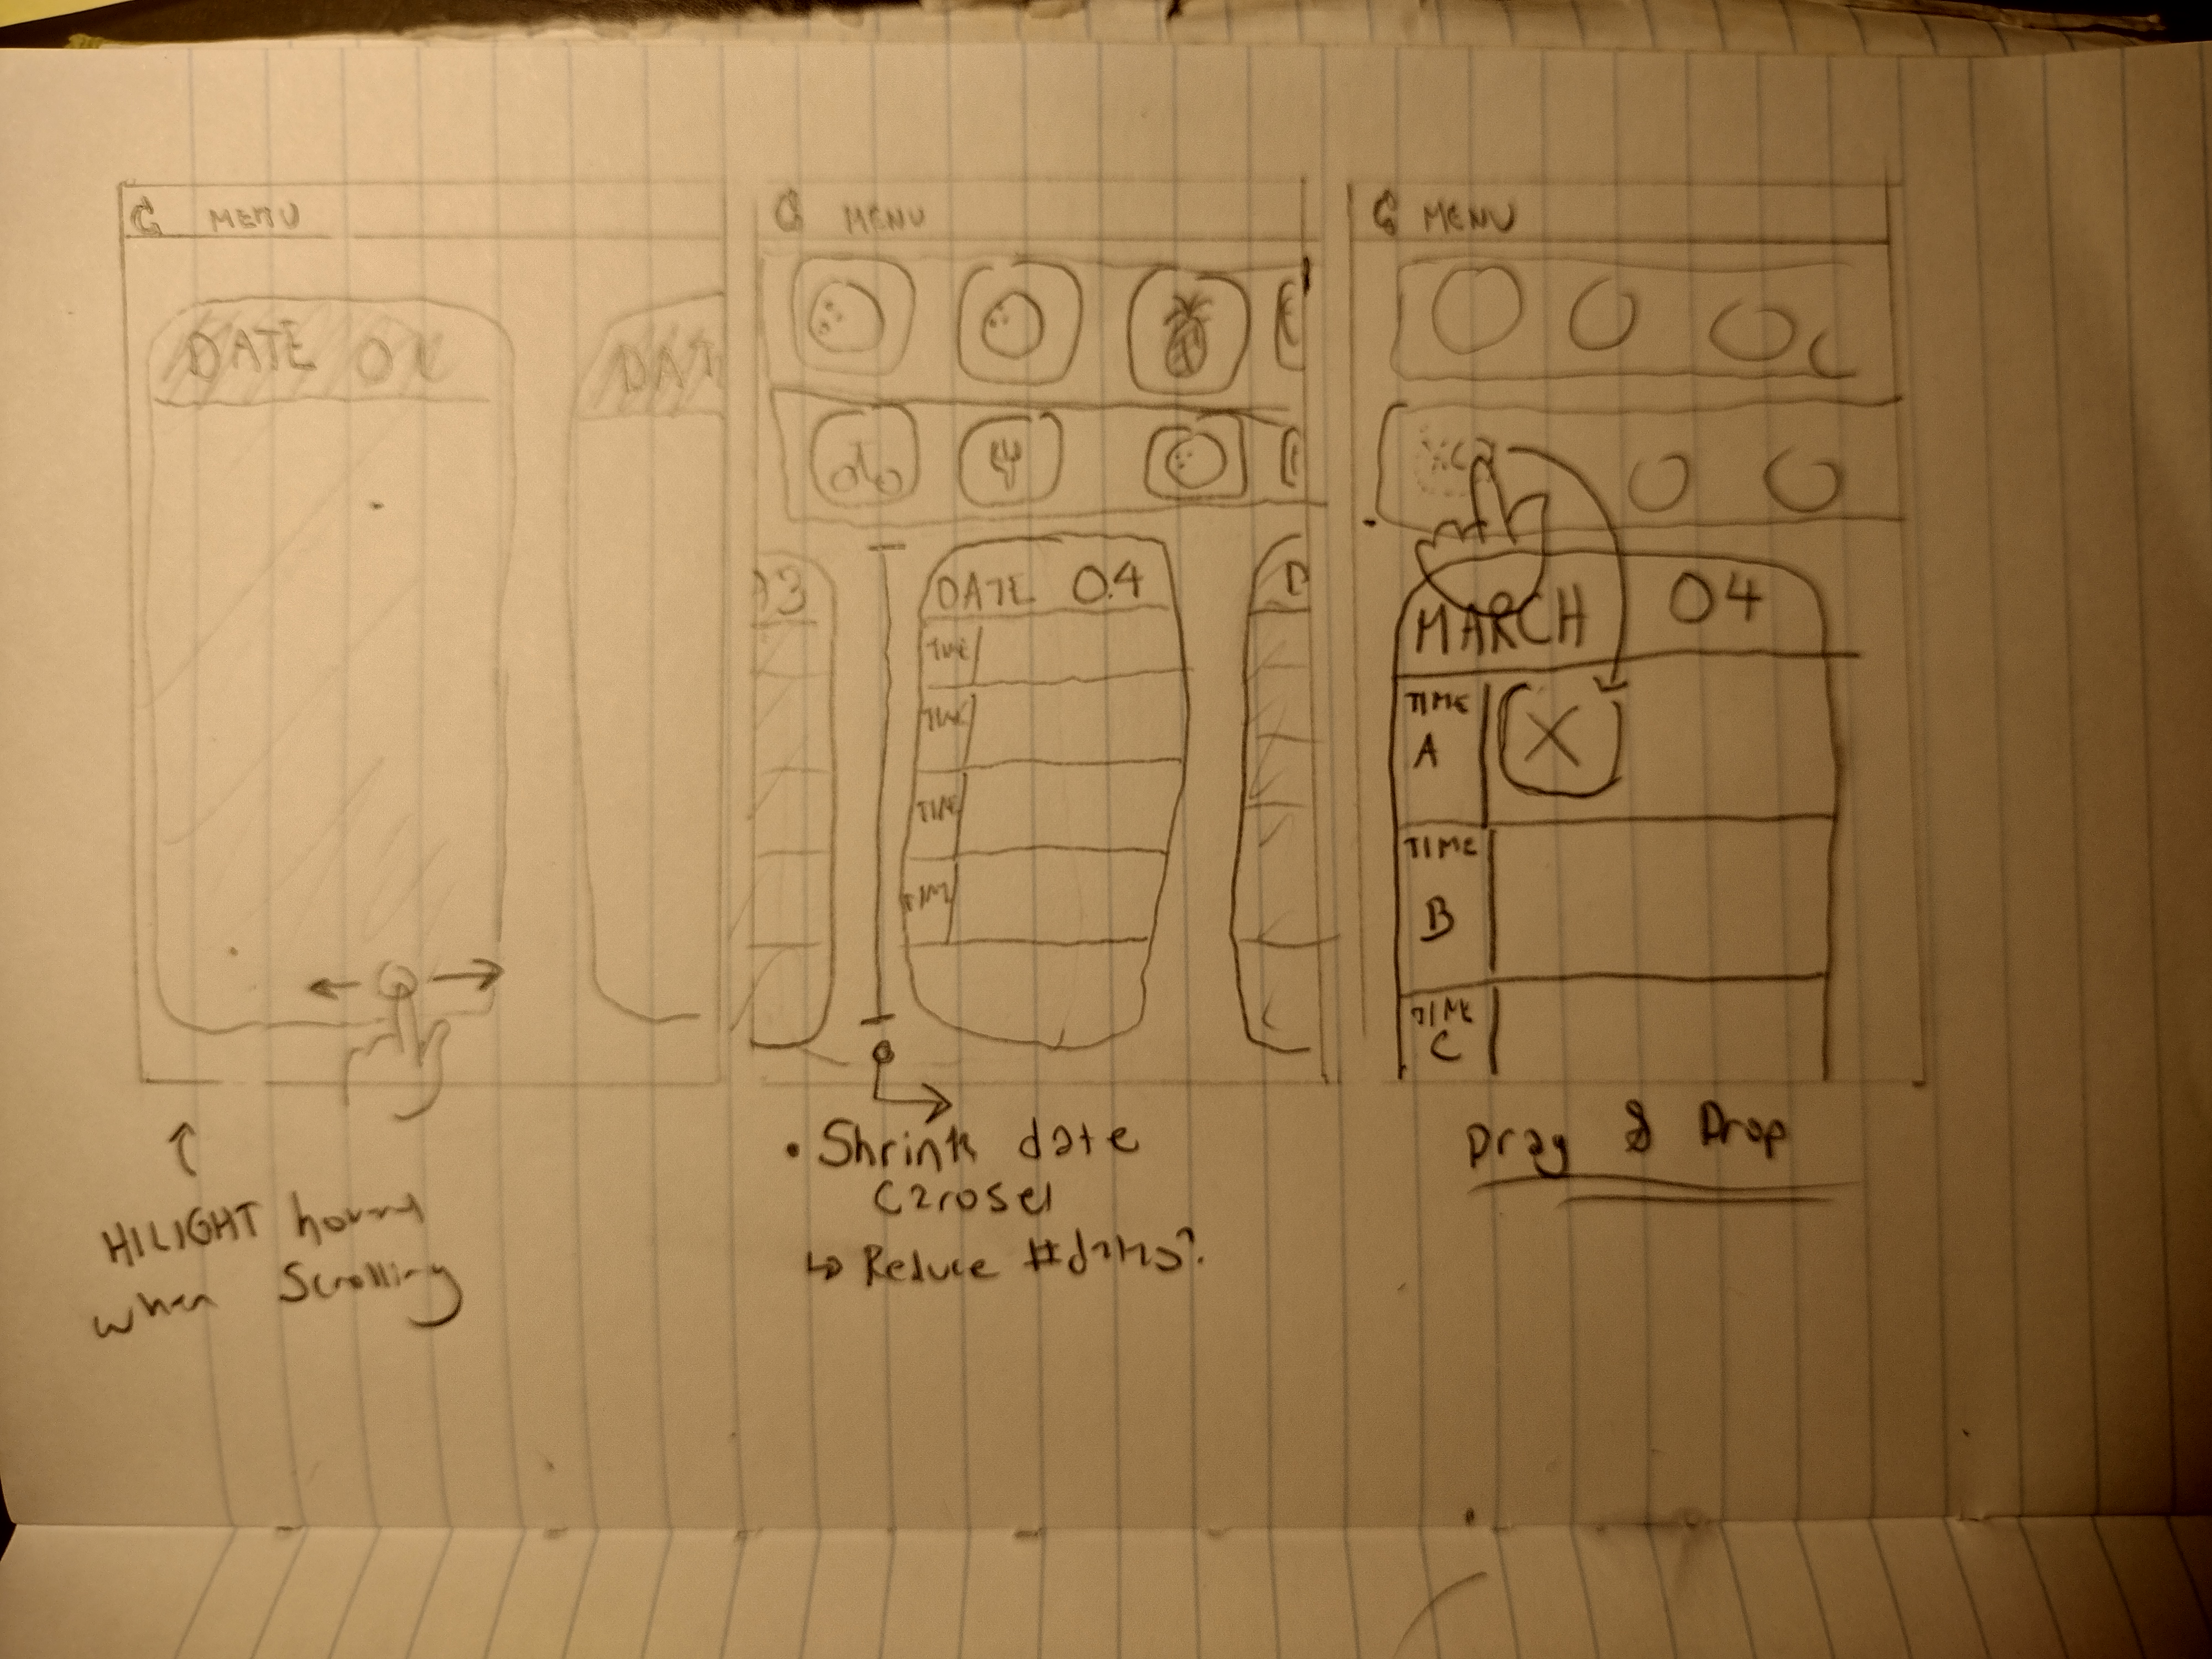 MENU
DATE 01
DAT
HILIGHT
when Scrolling
MENU
03
DATE 04
D
TIME
TIME
TIME
TIME
• Shrink date
Carosel
↳ Reduce #dates?
MENU
MARCH 04
TIME
A
X
TIME
B
TIME
C
Drag & Drop